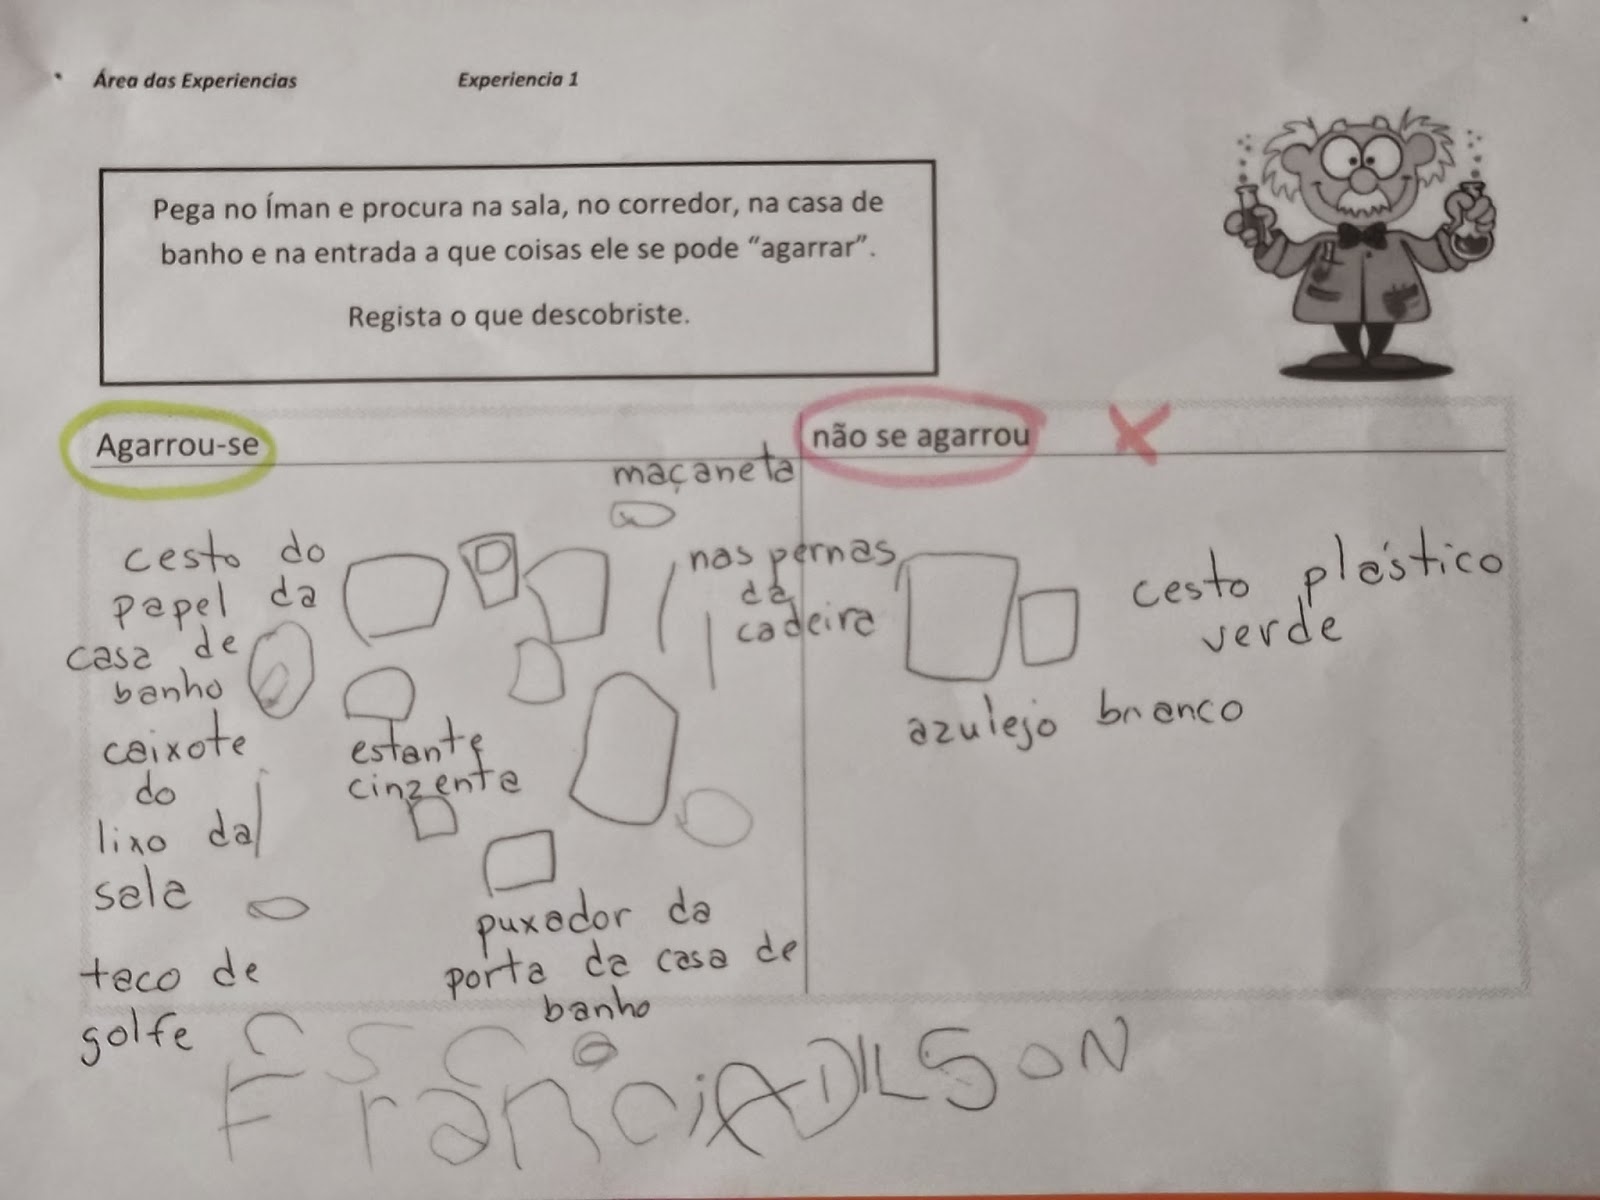 Área das Experiencias
Experiencia 1
Pega no Íman e procura na sala, no corredor, na casa de
banho e na entrada a que coisas ele se pode “agarrar”.
Regista o que descobriste.
Agarrou-se
não se agarrou
maçaneta
cesto do
papel da
casa de
banho
caixote
do
lixo da
sala
taco de
golfe
estante
cinzenta
nas pernas
da
cadeira
puxador da
porta da casa de
banho
cesto plástico
verde
azulejo branco
Franci
ADILSON